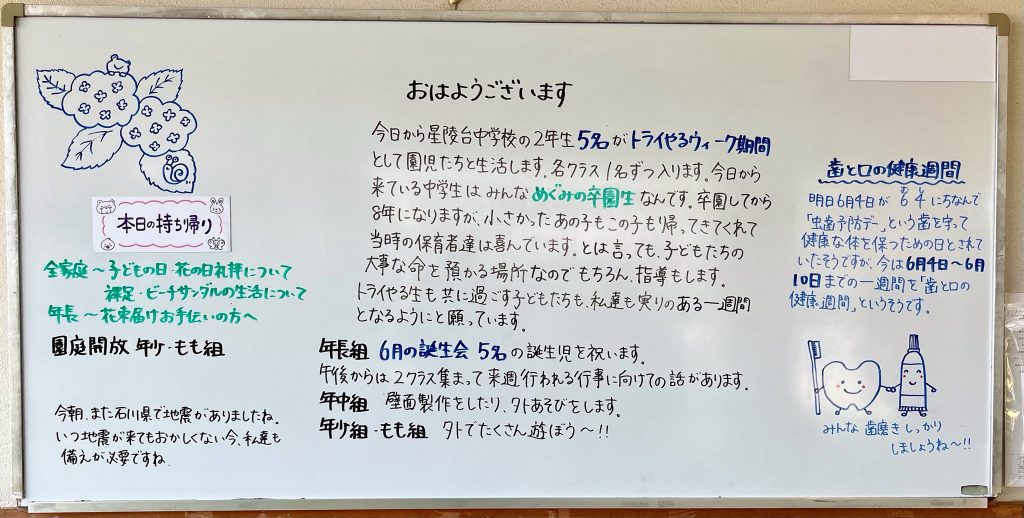 おはようございます
今日から星陵台中学校の2年生5名がトライやるウィーク期間
として園児たちと生活します。各クラス1名ずつ入ります。今日から
来ている中学生はみんなめぐみの卒園生なんです。卒園してから
8年になりますが、小さかったあの子もこの子も帰ってきてくれて
当時の保育者達は喜んでいます。とは言っても、子どもたちの
大事な命を預かる場所なのでもちろん、指導もします。
トライやる生も共に過ごす子どもたちも、私達も実りのある一週間
となるようにと願っています。
年長組 6月の誕生会 5名の誕生児を祝います。
午後からは2クラス集まって来週行われる行事に向けての話があります。
年中組 壁面製作をしたり、外あそびをします。
年少組・もも組 外でたくさん遊ぼう〜!!
本日の持ち帰り
全家庭〜子どもの日・花の日礼拝について
裸足・ビーチサンダルの生活について
年長〜花束届けお手伝いの方へ
園庭開放 年少・もも組
今朝、また石川県で地震がありましたね。
いつ地震が来てもおかしくない今、私達も
備えが必要ですね。
歯と口の健康週間
むし
明日6月4日が 6 4 にちなんで
「虫歯予防デー」という歯を守って
健康な体を保つための日とされて
いたそうですが、今は6月4日〜6月
10日までの一週間を「歯と口の
健康週間」というそうです。
みんな 歯磨きしっかり
しましょうね〜!!